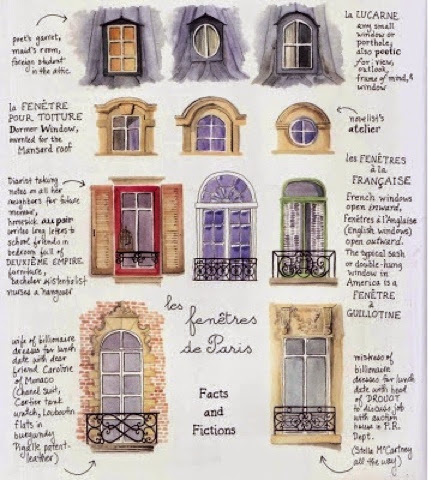 poet's garret,
maid's room,
foreign student
in the attic.
la LUCARNE
any small
window or
porthole;
also poetic
for view,
outlook,
frame of mind, &
window
la FENÊTRE
POUR TOITURE
Dormer Window,
invented for the
Mansard roof
novelist's
atelier
les FENÊTRES
à la
FRANÇAISE
French windows
open inward,
Fenêtres à l'Anglaise
(English windows)
open outward.
The typical sash
or double-hung
window in
America is a
FENÊTRE
à
GUILLOTINE
Diarist taking
notes on all her
neighbors for future
memoir,
homesick au pair
writes long letters to
school friends in
bedroom full of
DEUXIÈME EMPIRE
furniture,
bachelor existentialist
nurses a hangover
les
fenêtres
de Paris
Facts
and
Fictions
wife of billionaire
dresses for lunch
date with dear
friend Caroline
of Monaco
(Chanel suit,
Cartier tank
watch, Louboutin
flats in
burgundy
Pigalle patent-
leather)
mistress of
billionaire
dresses for lunch
date with head
of DROUOT
to discuss job
with auction
house in P.R.
Dept.
(Stella McCartney
all the way)